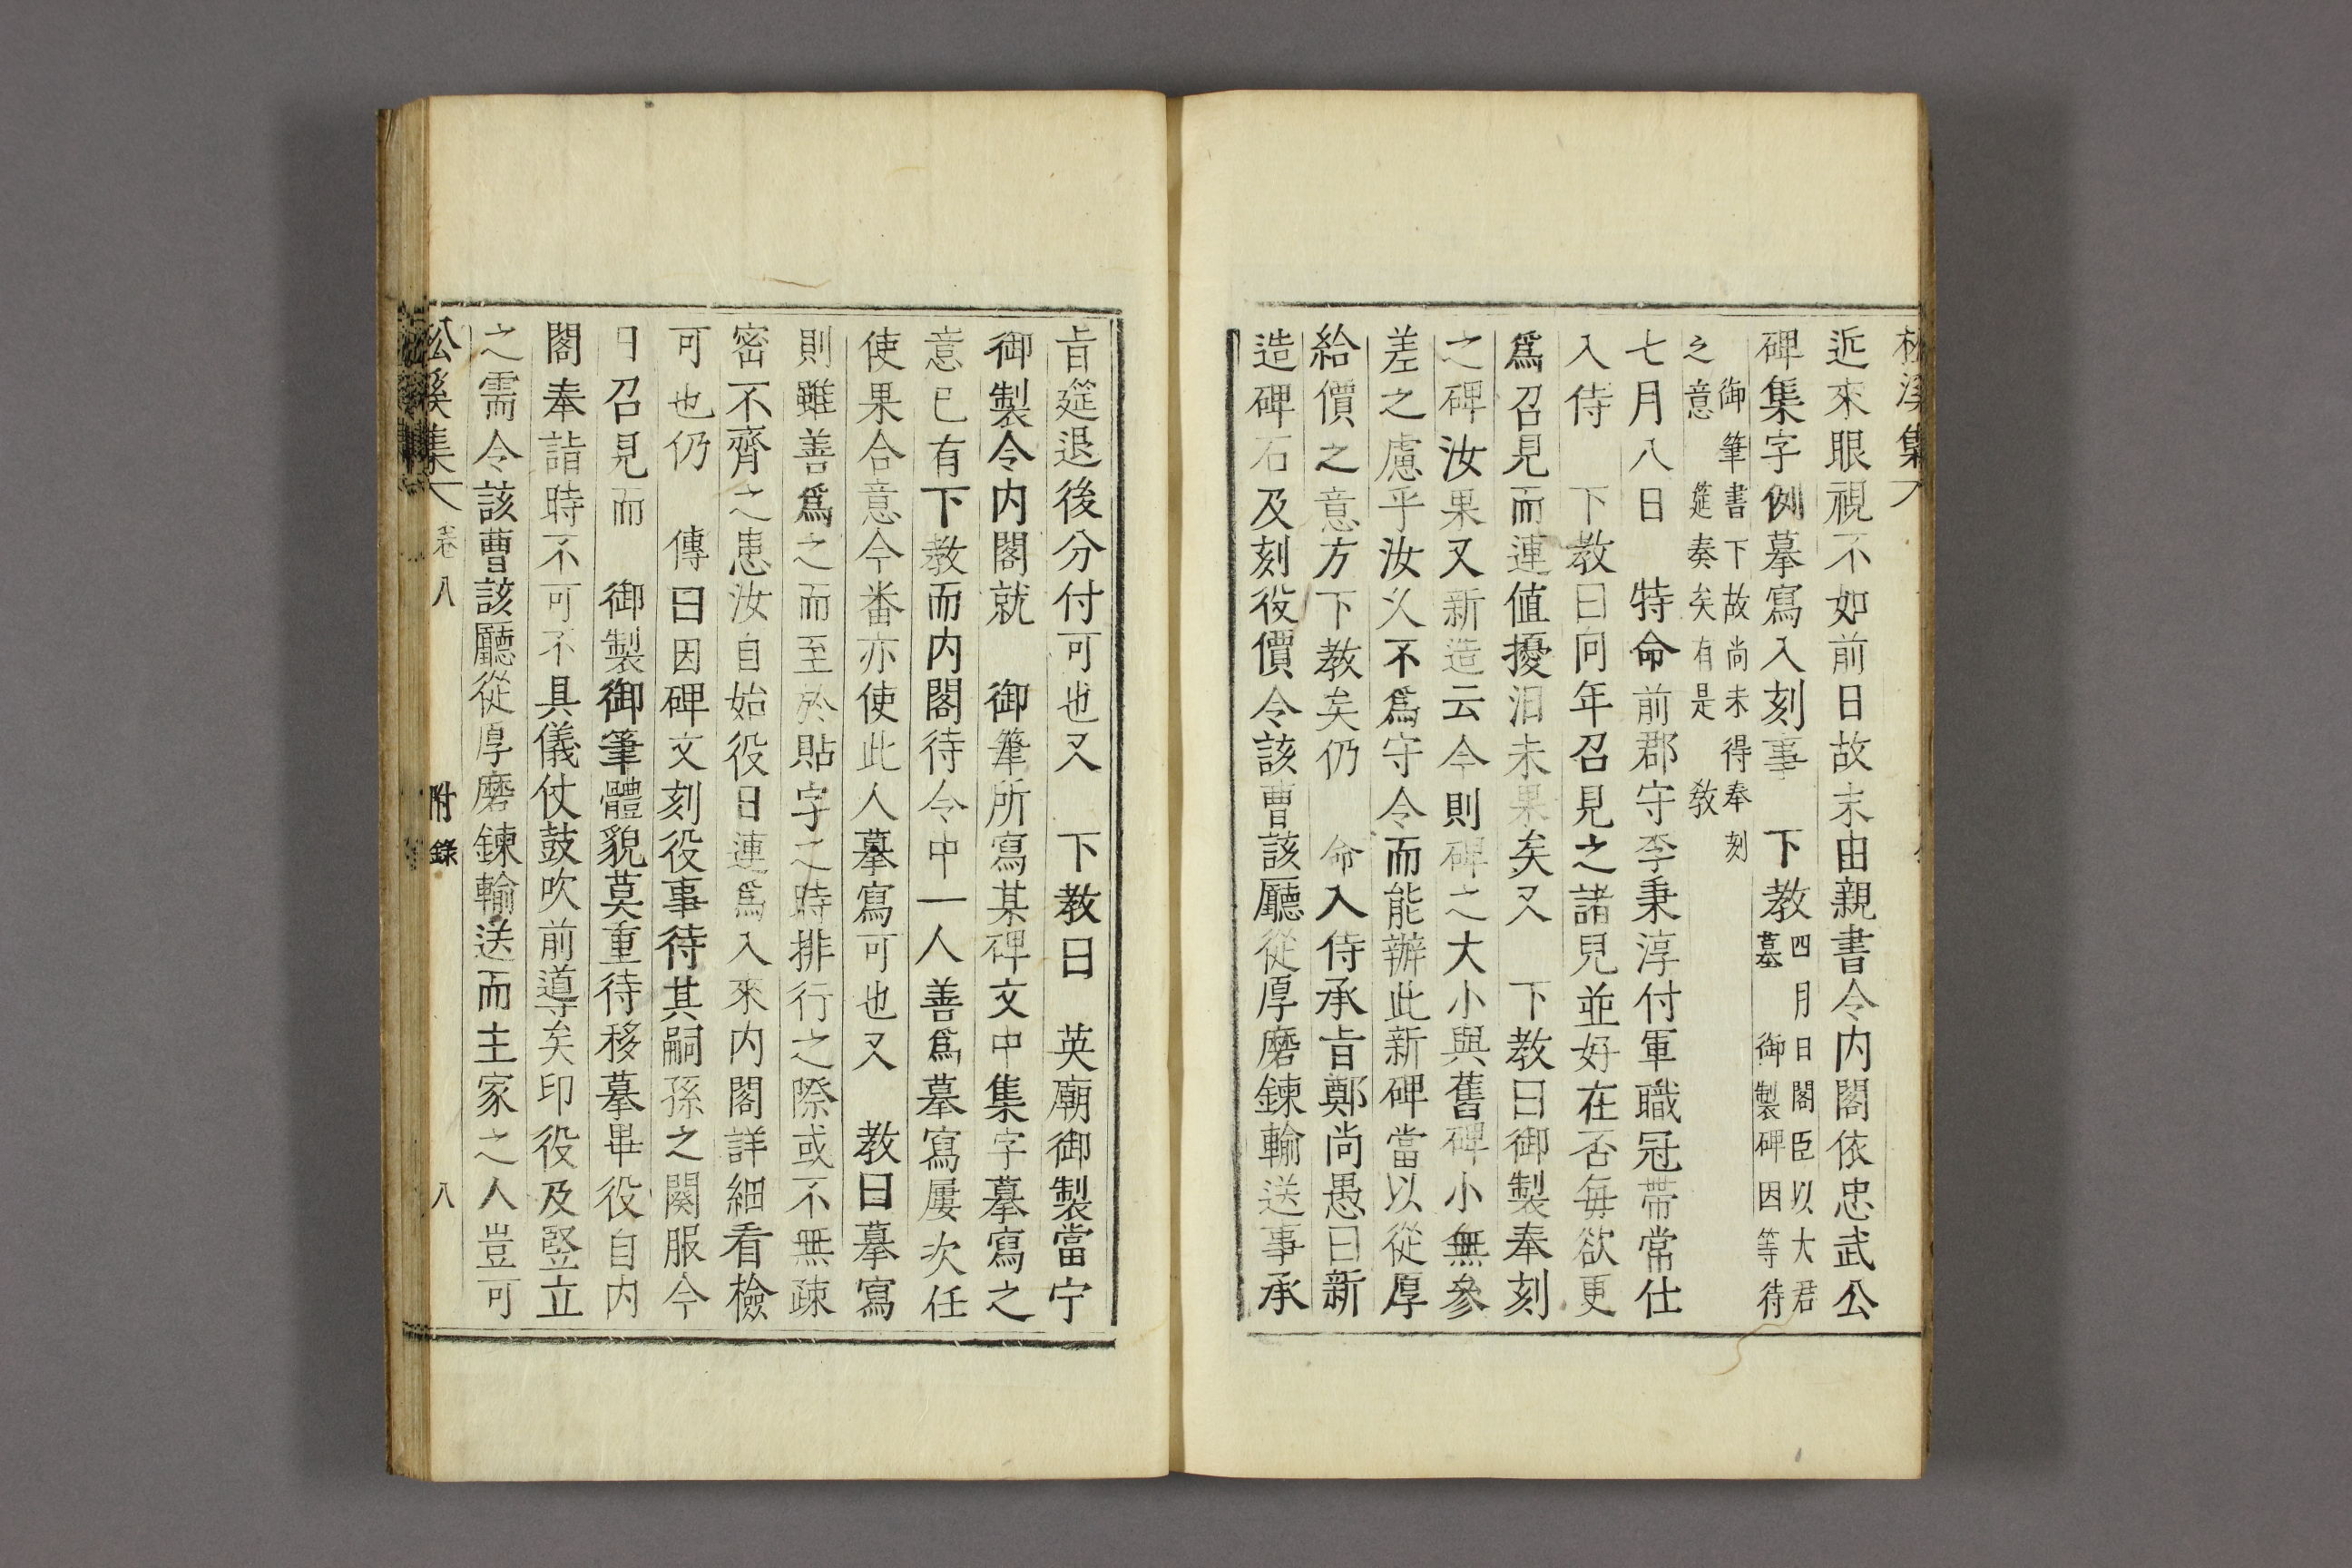 松溪集
近來眼視不如前日故末由親書令内閣依忠武公
碑集字例摹寫入刻事 下教 四月日閣臣以大君
墓 御製碑因等待
御筆書下故尚未得奉刻
之意 筵奏矣有是 敎
七月八日 特命前郡守李秉淳付軍職冠帶常仕
入侍 下教曰向年召見之諸兒並好在否每欲更
爲召見而連值擾汨未果矣又 下教曰御製奉刻
之碑汝果又新造云今則碑之大小與舊碑小無參
差之慮乎汝乆不爲守令而能辦此新碑當以從厚
給價之意方下教矣仍 命入侍承旨鄭尚愚曰新
造碑石及刻役價令該曹該廳從厚磨鍊輸送事承
旨筵退後分付可也又 下教曰 英廟御製當宁
御製令内閣就 御筆所寫某碑文中集字摹寫之
意已有下教而内閣待令中一人善爲摹寫屢次任
使果合意今番亦使此人摹寫可也又 教曰摹寫
則雖善爲之而至於貼字之時排行之際或不無疎
密不齊之患汝自始役日連爲入來内閣詳細看檢
可也仍 傳曰因碑文刻役事待其嗣孫之闋服今
日召見而 御製御筆體貌莫重待移摹畢役自内
閣奉詣時不可不具儀仗鼓吹前導矣印役及竪立
之需令該曹該廳從厚磨鍊輸送而主家之人豈可
松溪集 卷八 附錄 八